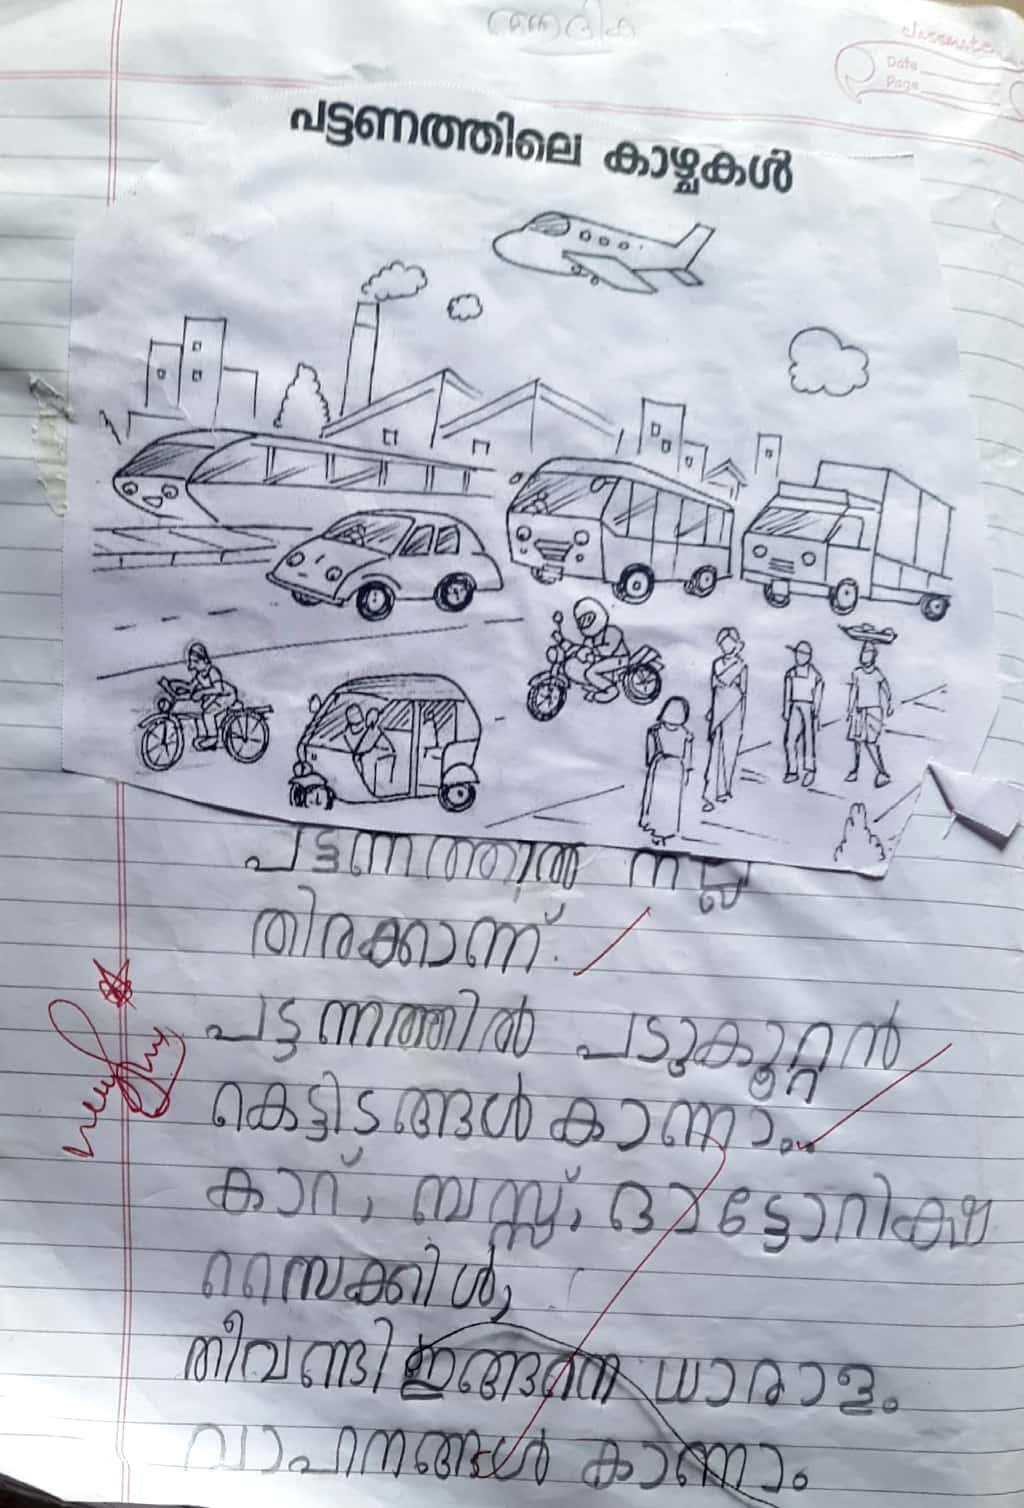 classmate
Date
Page
പട്ടണത്തിലെ കാഴ്ചകൾ
പട്ടന്നത്തിൽ നല്ല
തിരക്കാന്ന്.
പട്ടന്നത്തിൽ പടുകൂറ്റൻ
കെട്ടിടങ്ങൾ കാന്നാം.
കാറ്, ബസ്സ്, ഓട്ടോറിക്ഷ
സൈക്കിൾ,
തീവണ്ടി ഇങ്ങനെ ധാരാളം
വാഹനങ്ങൾ കാണാം